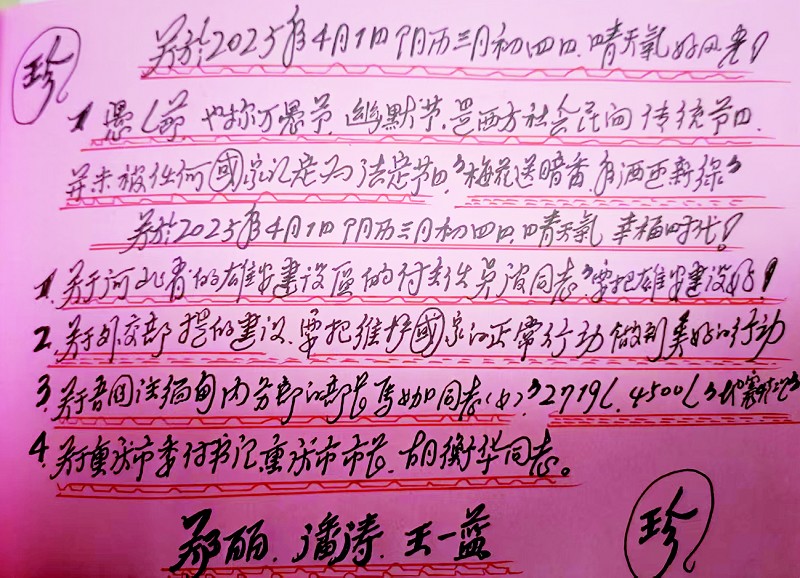 珍
关於2025年4月1日阴历三月初四日.晴天氣好风光!
1 愚人节.也称万愚节.幽默节.是西方社会民间传统节日.
并未被任何國家认定为法定节日,"梅花送暗香.有酒还新绿"
关於2025年4月1日阴历三月初四日.晴天氣 幸福时代!
1.关于河北省的雄安建设區的付主任吴波同志.要把雄安建设好!
2.关于外交部 提的建议.要把维护國家的正常行动 做到美好的行动
3.关于 缅甸内务部的部长 同志(女)."2719人.4500人"地震
4.关于重庆市委付书记.重庆市市长.胡衡华同志。
郑丽.潘涛.王一蓝
珍